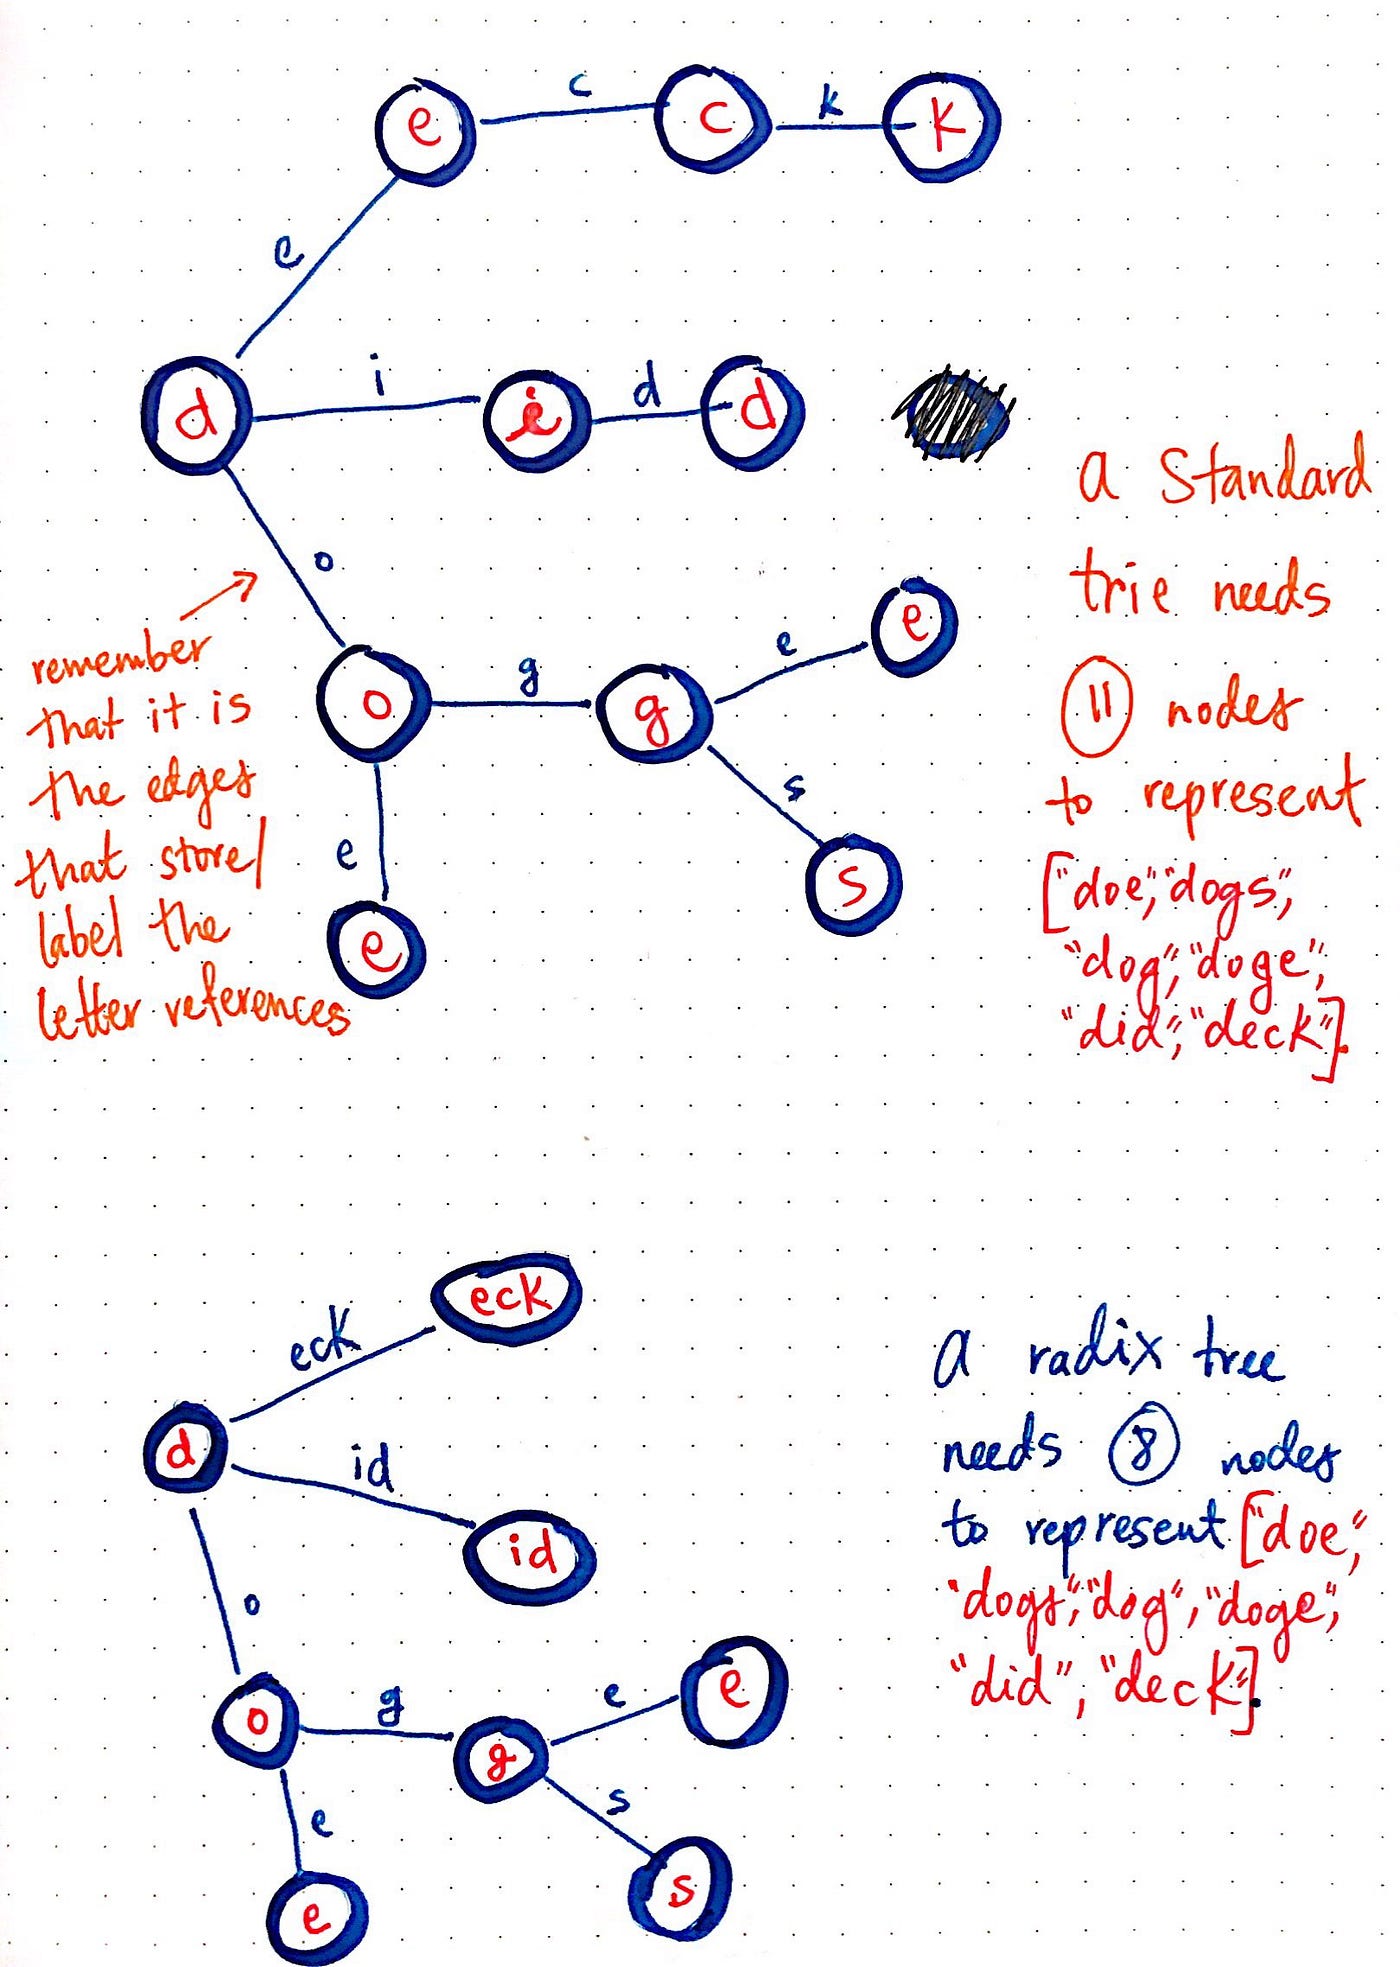 e
c
c
k
k
e
d
i
i
d
d
o
o
g
g
e
e
s
s
e
e
remember
that it is
the edges
that store/
label the
letter references
a standard
trie needs
11 nodes
to represent
["doe", "dogs",
"dog", "doge",
"did", "deck"].
eck
eck
d
id
id
o
o
g
g
e
e
s
s
e
e
a radix tree
needs 8 nodes
to represent ["doe",
"dogs", "dog", "doge",
"did", "deck"].